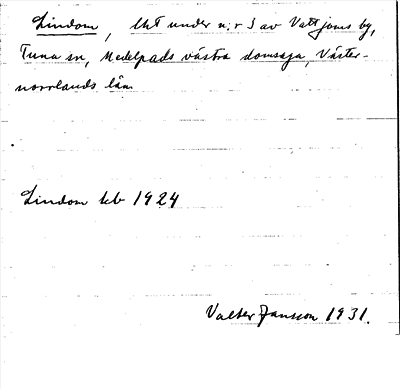 Lindom, lht under n:r 3 av Vattjoms by,
Tuna sn, Medelpads västra domsaga, Väster-
norrlands län
Lindom kb 1924
Valter Jansson 1931.